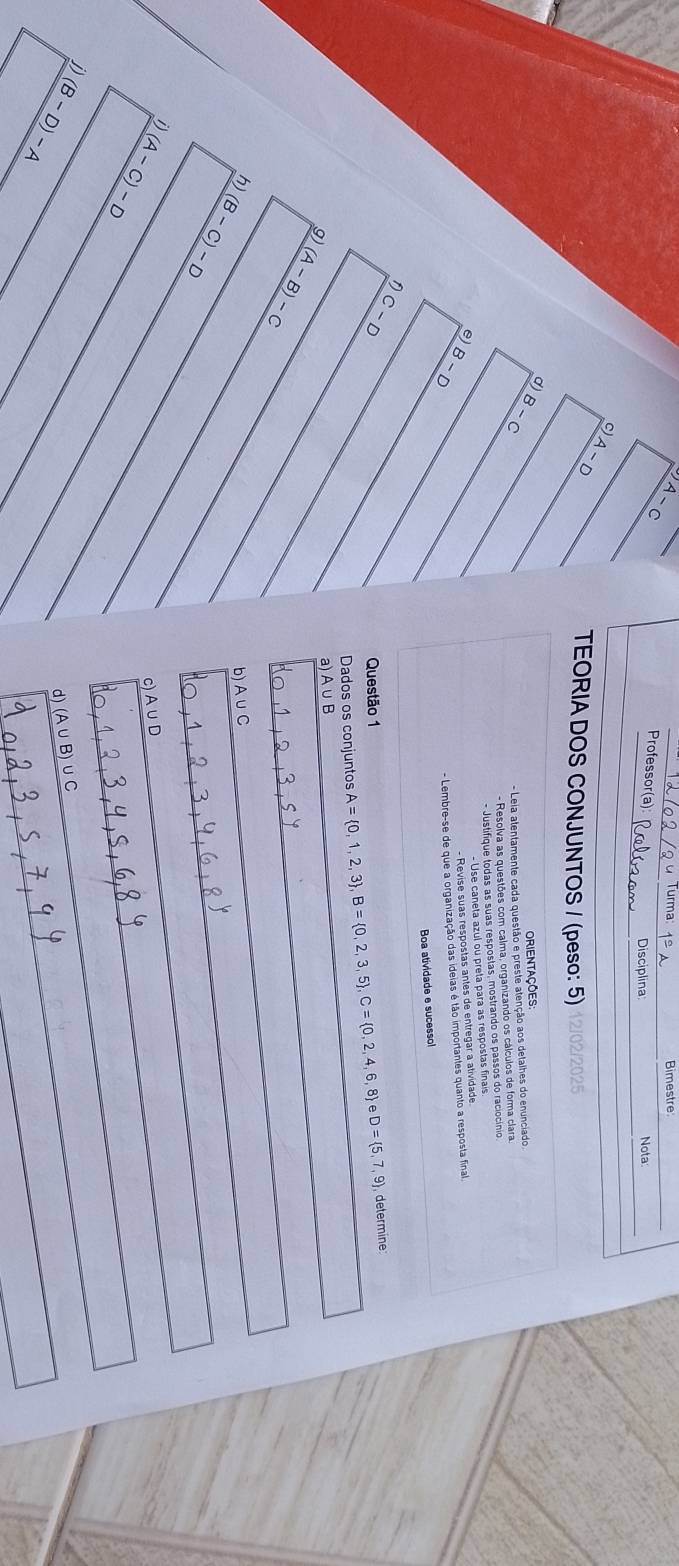 12/02/24 Turma: 1º A Bimestre:
Professor(a): Disciplina: Nota:
TEORIA DOS CONJUNTOS / (peso: 5) 12/02/2025
ORIENTAÇÕES:
- Leia atentamente cada questão e preste atenção aos detalhes do enunciado.
- Resolva as questões com calma, organizando os cálculos de forma clara.
- Justifique todas as suas respostas, mostrando os passos do raciocínio.
- Use caneta azul ou preta para as respostas finais.
- Revise suas respostas antes de entregar a atividade.
- Lembre-se de que a organização das ideias é tão importantes quanto a resposta final.
Boa atividade e sucesso!
Questão 1
Dados os conjuntos A = {0, 1, 2, 3}, B = {0, 2, 3, 5}, C = {0, 2, 4, 6, 8} e D = {5, 7, 9}, determine:
a) A ∪ B
{0, 1, 2, 3, 5}
b) A ∪ C
{0, 1, 2, 3, 4, 6, 8}
c) A ∪ D
{0, 1, 2, 3, 4, 5, 6, 8}
d) (A ∪ B) ∪ C
{0, 2, 3, 5, 7, 9}
A - C
c) A - D
d) B - C
e) B - D
f) C - D
g) (A - B) - C
h) (B - C) - D
i) (A - C) - D
j) (B - D) - A